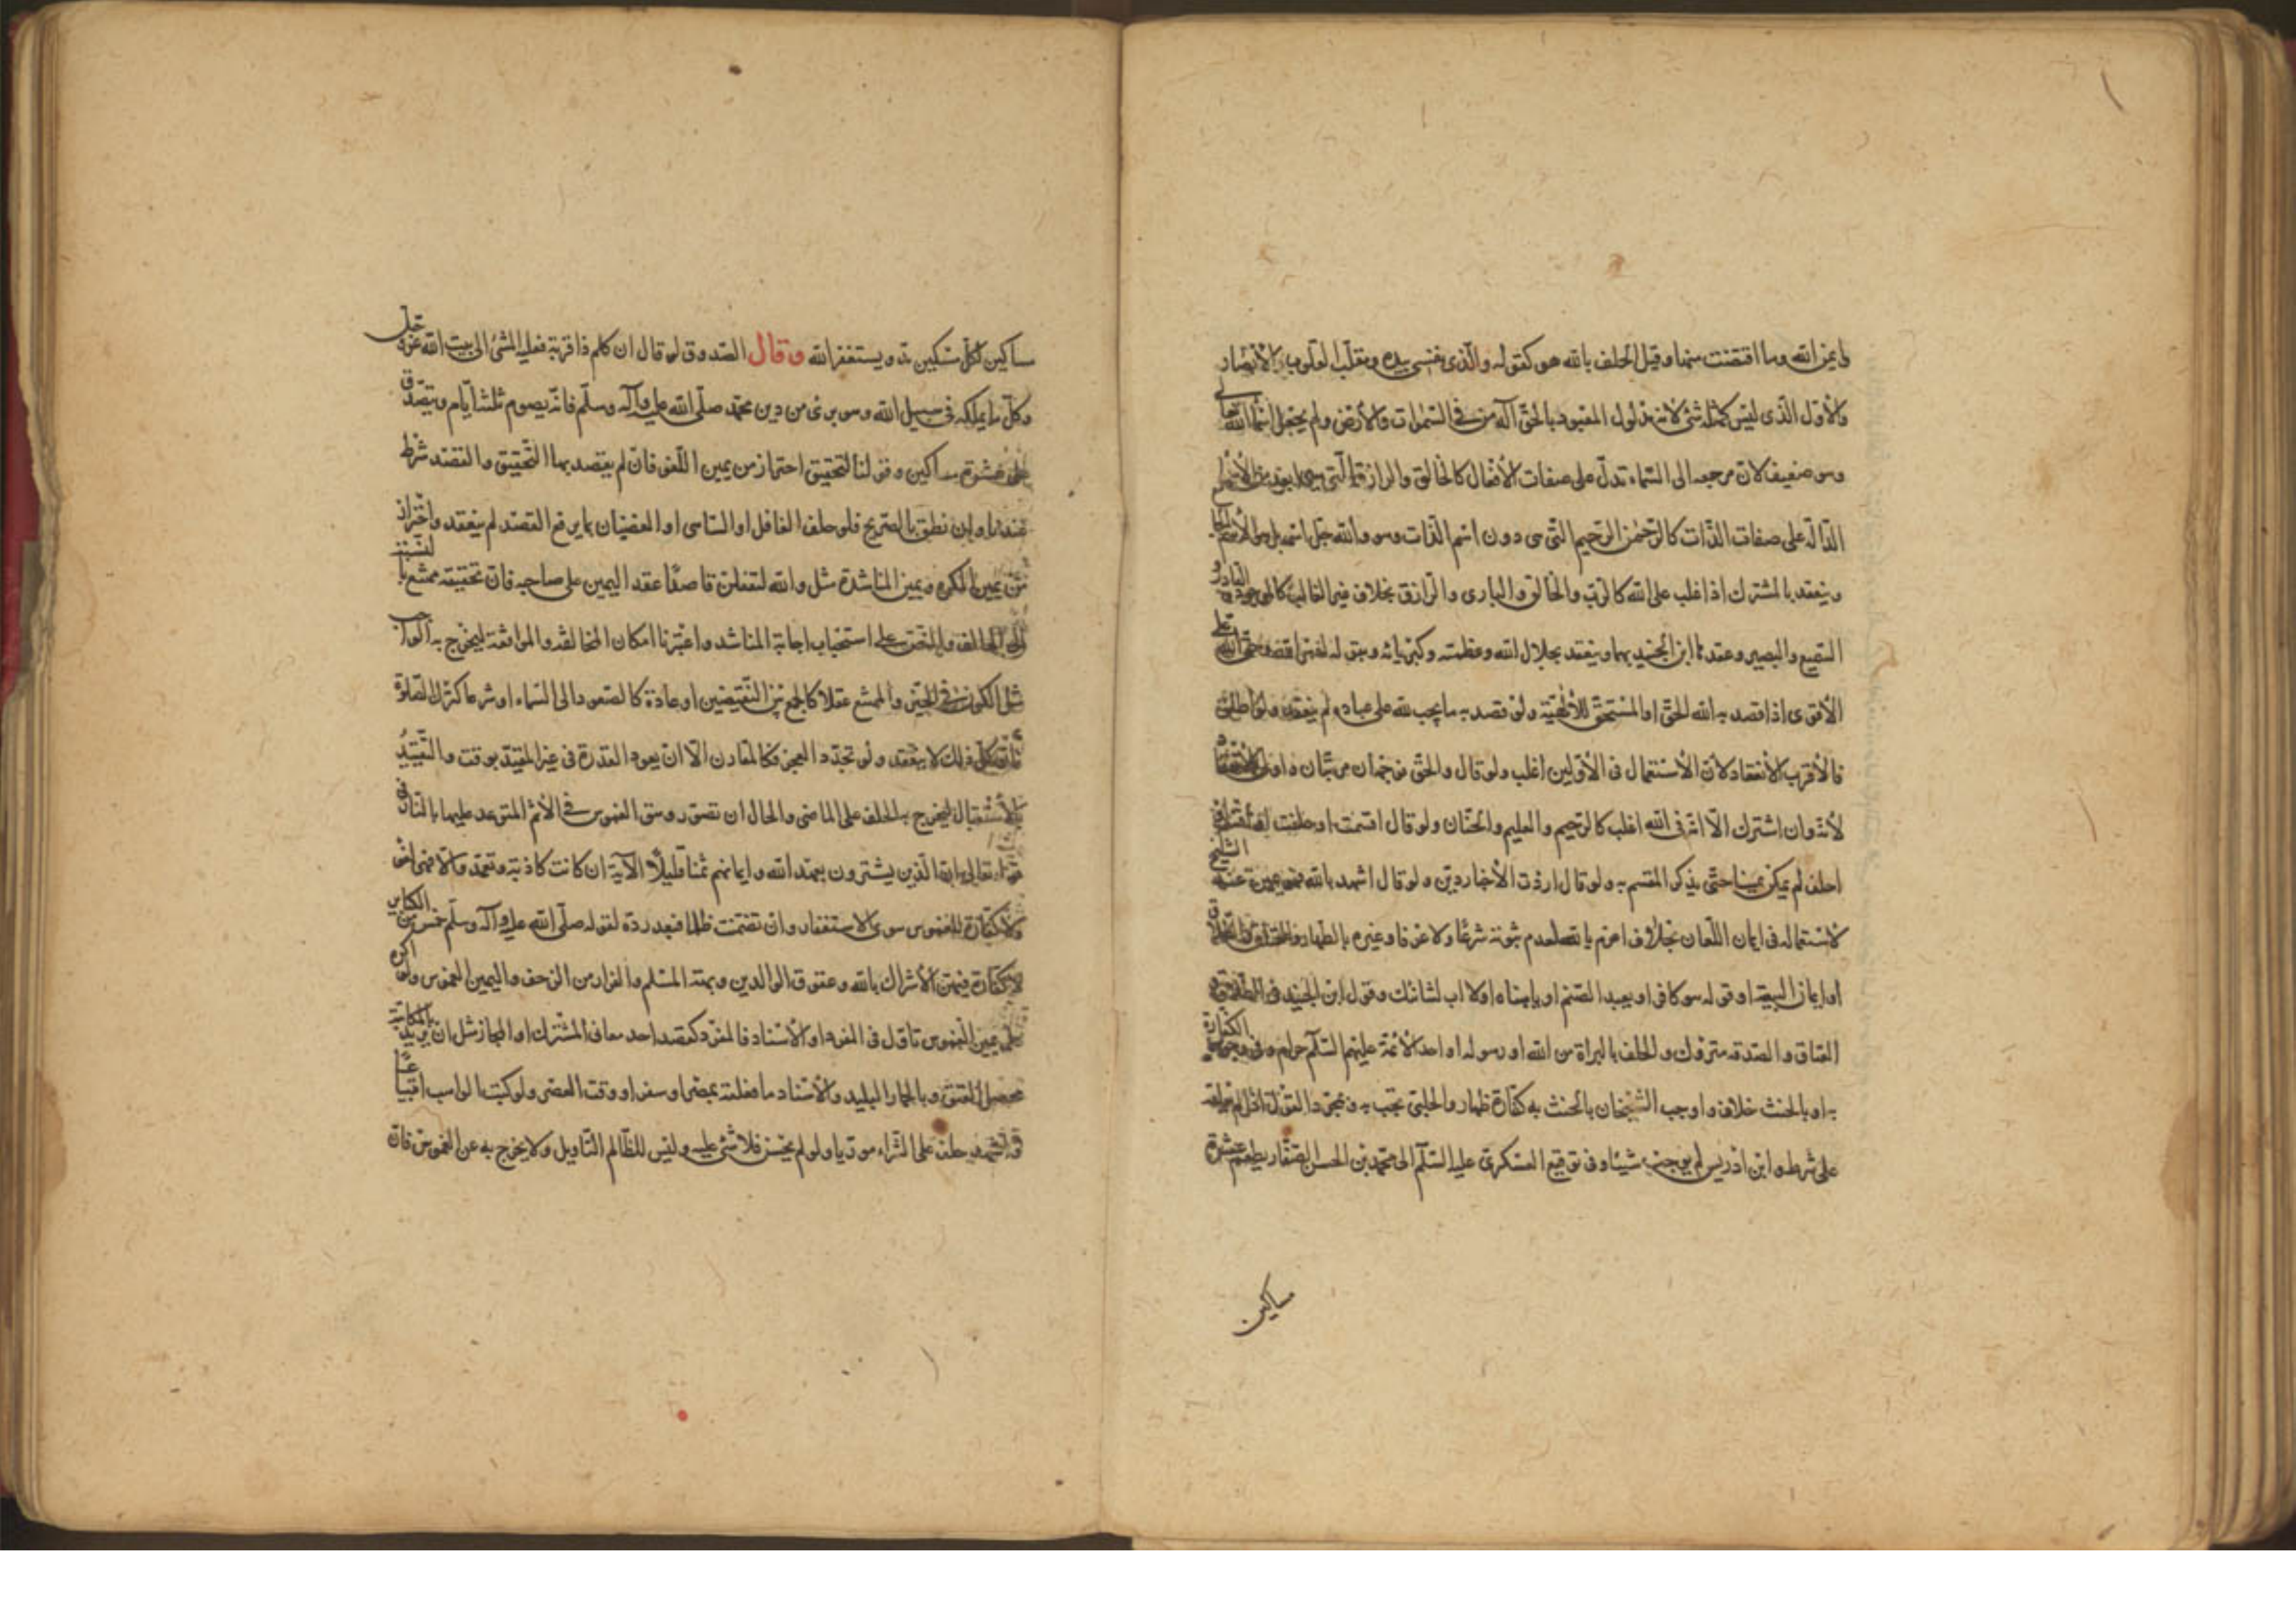 وايمن الله وما اقتضت منها وقيل الحلف بالله هو كقوله والذى نفسى بيده ومقلب القلوب والأبصار
والأول الذى ليس كمثله شئ لأنه مدلول المعبود بالحق آله من فى السموات والأرض ولم يجعل اسما لله تعالى
وهو ضعيف لان مرجعه الى اسماء تدل على صفات الأفعال كالخالق والرازق التى هى ابعد من الأسماء
الدالة على صفات الذات كالرحمن الرحيم التى هى دون اسم الذات وهو والله جل اسمه بل هو الاسم الجامع
وينعقد بالمشترك اذا غلب على الله كالرب والخالق والبارى والرازق بخلاف غير الغالب كالموجود والقادر و
السميع والبصير وعقد ابن الجنيد بهما وينعقد بجلال الله وعظمته وكبريائه وبقوله لعمر الله اقسم وحق الله تعالى
الأقوى اذا قصد به الله الحق او المستحق للألهية ولو قصد به ما يجب لله على عباده لم ينعقد ولو اطلق
فالأقرب الأنعقاد لأن الأستعمال فى الأولين اغلب ولو قال والحق فوجهان مرتبان واولى
لأنه وان اشترك الا انه فى الله اغلب كالرحيم والعليم والحنان ولو قال اقسمت او حلفت او اقسم او
احلف لم يكن يمينا حتى يذكر المقسم به ولو قال اردت الأخبار دين ولو قال اشهد بالله فهو يمين عند الشيخ
لاستعماله فى ايمان اللعان بخلاف اعزم بالله لعدم ثبوته شرعا ولا عرفا وغيره بالطهار والعتاق والطلاق
او ايمان البيعة او قوله هو كافر او يعبد الصنم او يا هناه او لا اب لشانئك وقول ابن الجنيد فى الطلاق و
العتاق والصدقة متروك والحلف بالبراة من الله او رسوله او احد الأئمة عليهم السلام حرام وفى وجوب الكفارة
به او بالحنث خلاف واوجب الشيخان بالحنث به كفارة ظهار والحلبى تجب به وبمجرد القول اذا لم يعلقه
على شرط وابن ادريس لم يوجب شيئا وفى توقيع العسكرى عليه السلام الى محمد بن الحسن الصفار يطعم عشرة
مساكين
مساكين لكل مسكين مد ويستغفر الله وقال الصدوق لو قال ان كلم ذا قرابة فعليه المشى الى بيت الله عز وجل
وكل ما يملكه فى سبيل الله وهو برئ من دين محمد صلى الله عليه وآله وسلم فانه يصوم ثلثة ايام ويتصدق
على عشرة مساكين وقولنا لتحقيق احتراز من يمين اللغو فان لم يقصد بها التحقيق والقصد شرط
عندنا وان نطق بالصريح فلو حلف الغافل او الساهى او الغضبان بما يرفع القصد لم ينعقد واحتراز
من يمين المكره ويمين المناشدة مثل والله لتفعلن قاصدا عقد اليمين على صاحبه فان تحقيقه ممتنع بالنسبة
الى الحالف والحق على استحباب اجابة المناشد واعتبرنا امكان المخالفة والموافقة ليخرج به الواجب
مثل الكون فى الحيز والممتنع عقلا كالجمع بين النقيضين او عادة كالصعود الى السماء او شرعا كترك الصلوة
فان كل ذلك لا ينعقد ولو تجدد العجز فكالمقارن الا ان يعود القدرة فى غير المقيد بوقت والتقييد
بالأستقبال ليخرج به الحلف على الماضى والحال ان تصور وهو الغموس فى الأثم المتوعد عليها بالنار فى
قوله تعالى ان الذين يشترون بعهد الله وايمانهم ثمنا قليلا الآية ان كانت كاذبة وتعمد والا فهى لغو
ولا كفارة للغموس سوى الاستغفار وان تضمنت ظلما فبعد رده لقوله صلى الله عليه وآله وسلم خمس من الكبائر
لا كفارة فيهن الأشراك بالله وعقوق الوالدين وبهتة المسلم والفرار من الزحف واليمين الغموس ولو اكره
على يمين الغموس تاول فى المفرد او الأسناد فالمفرد كقصد احد معانى المشترك او المجاز مثل ان يريد بالمكاتبة
محصل العتق وبالحمار البليد والأسناد ما فعلته بمصر او سفر او وقت العصر ولو كتب الواهب اقتباعا
فى حلف على الشراء موريا ولو لم يحسن فلا شئ عليه وليس للظالم التأويل ولا يخرج به عن الغموس فان